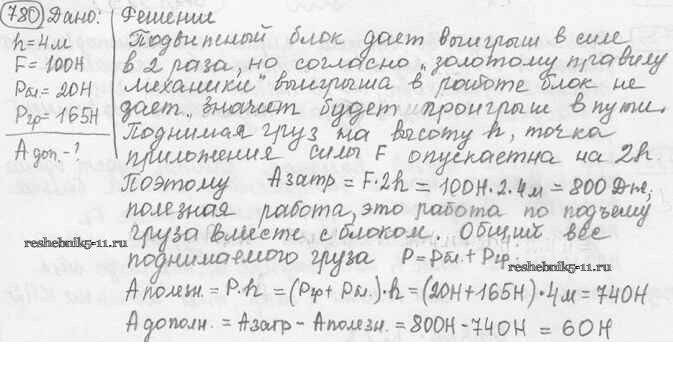 780 Дано: Решение
h = 4м
F = 100Н
Рбл = 20Н
Ргр = 165Н
А доп. - ?
Подвижный блок дает выигрыш в силе
в 2 раза, но согласно „золотому правилу
механики" выигрыша в работе блок не
дает, значит будет и проигрыш в пути.
Поднимая груз на высоту h, точка
приложения силы F опускается на 2h.
Поэтому А затр = F·2h = 100Н·2·4м = 800Дж,
полезная работа, это работа по подъему
груза вместе с блоком. Общий вес
reshebnik5-11.ru
поднимаемого груза Р = Рбл. + Ргр.
reshebnik5-11.ru
А полезн. = Р·h = (Ргр + Рбл)·h = (20Н + 165Н)·4м = 740Н
А дополн. = Азатр - Аполезн. = 800Н - 740Н = 60Н